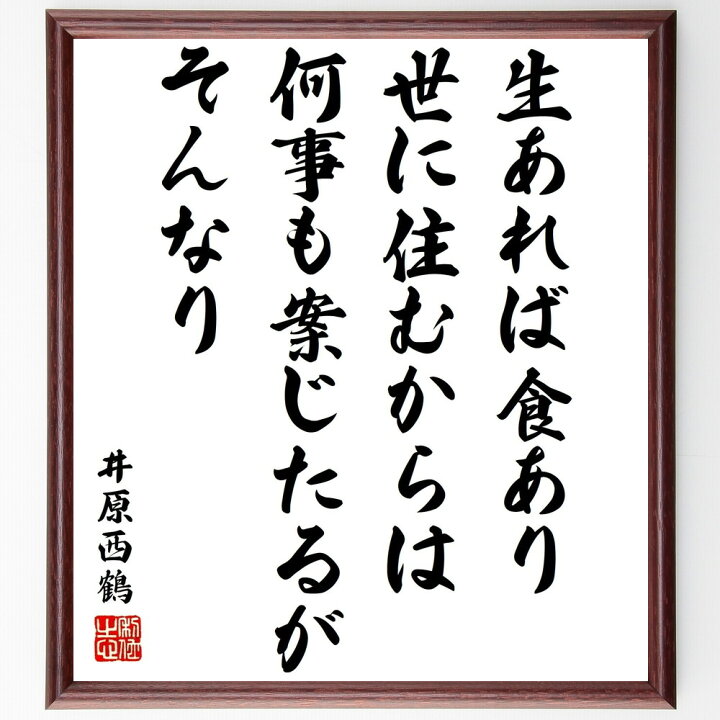 生あれば食あり
世に住むからは
何事も案じたるが
そんなり
井原西鶴